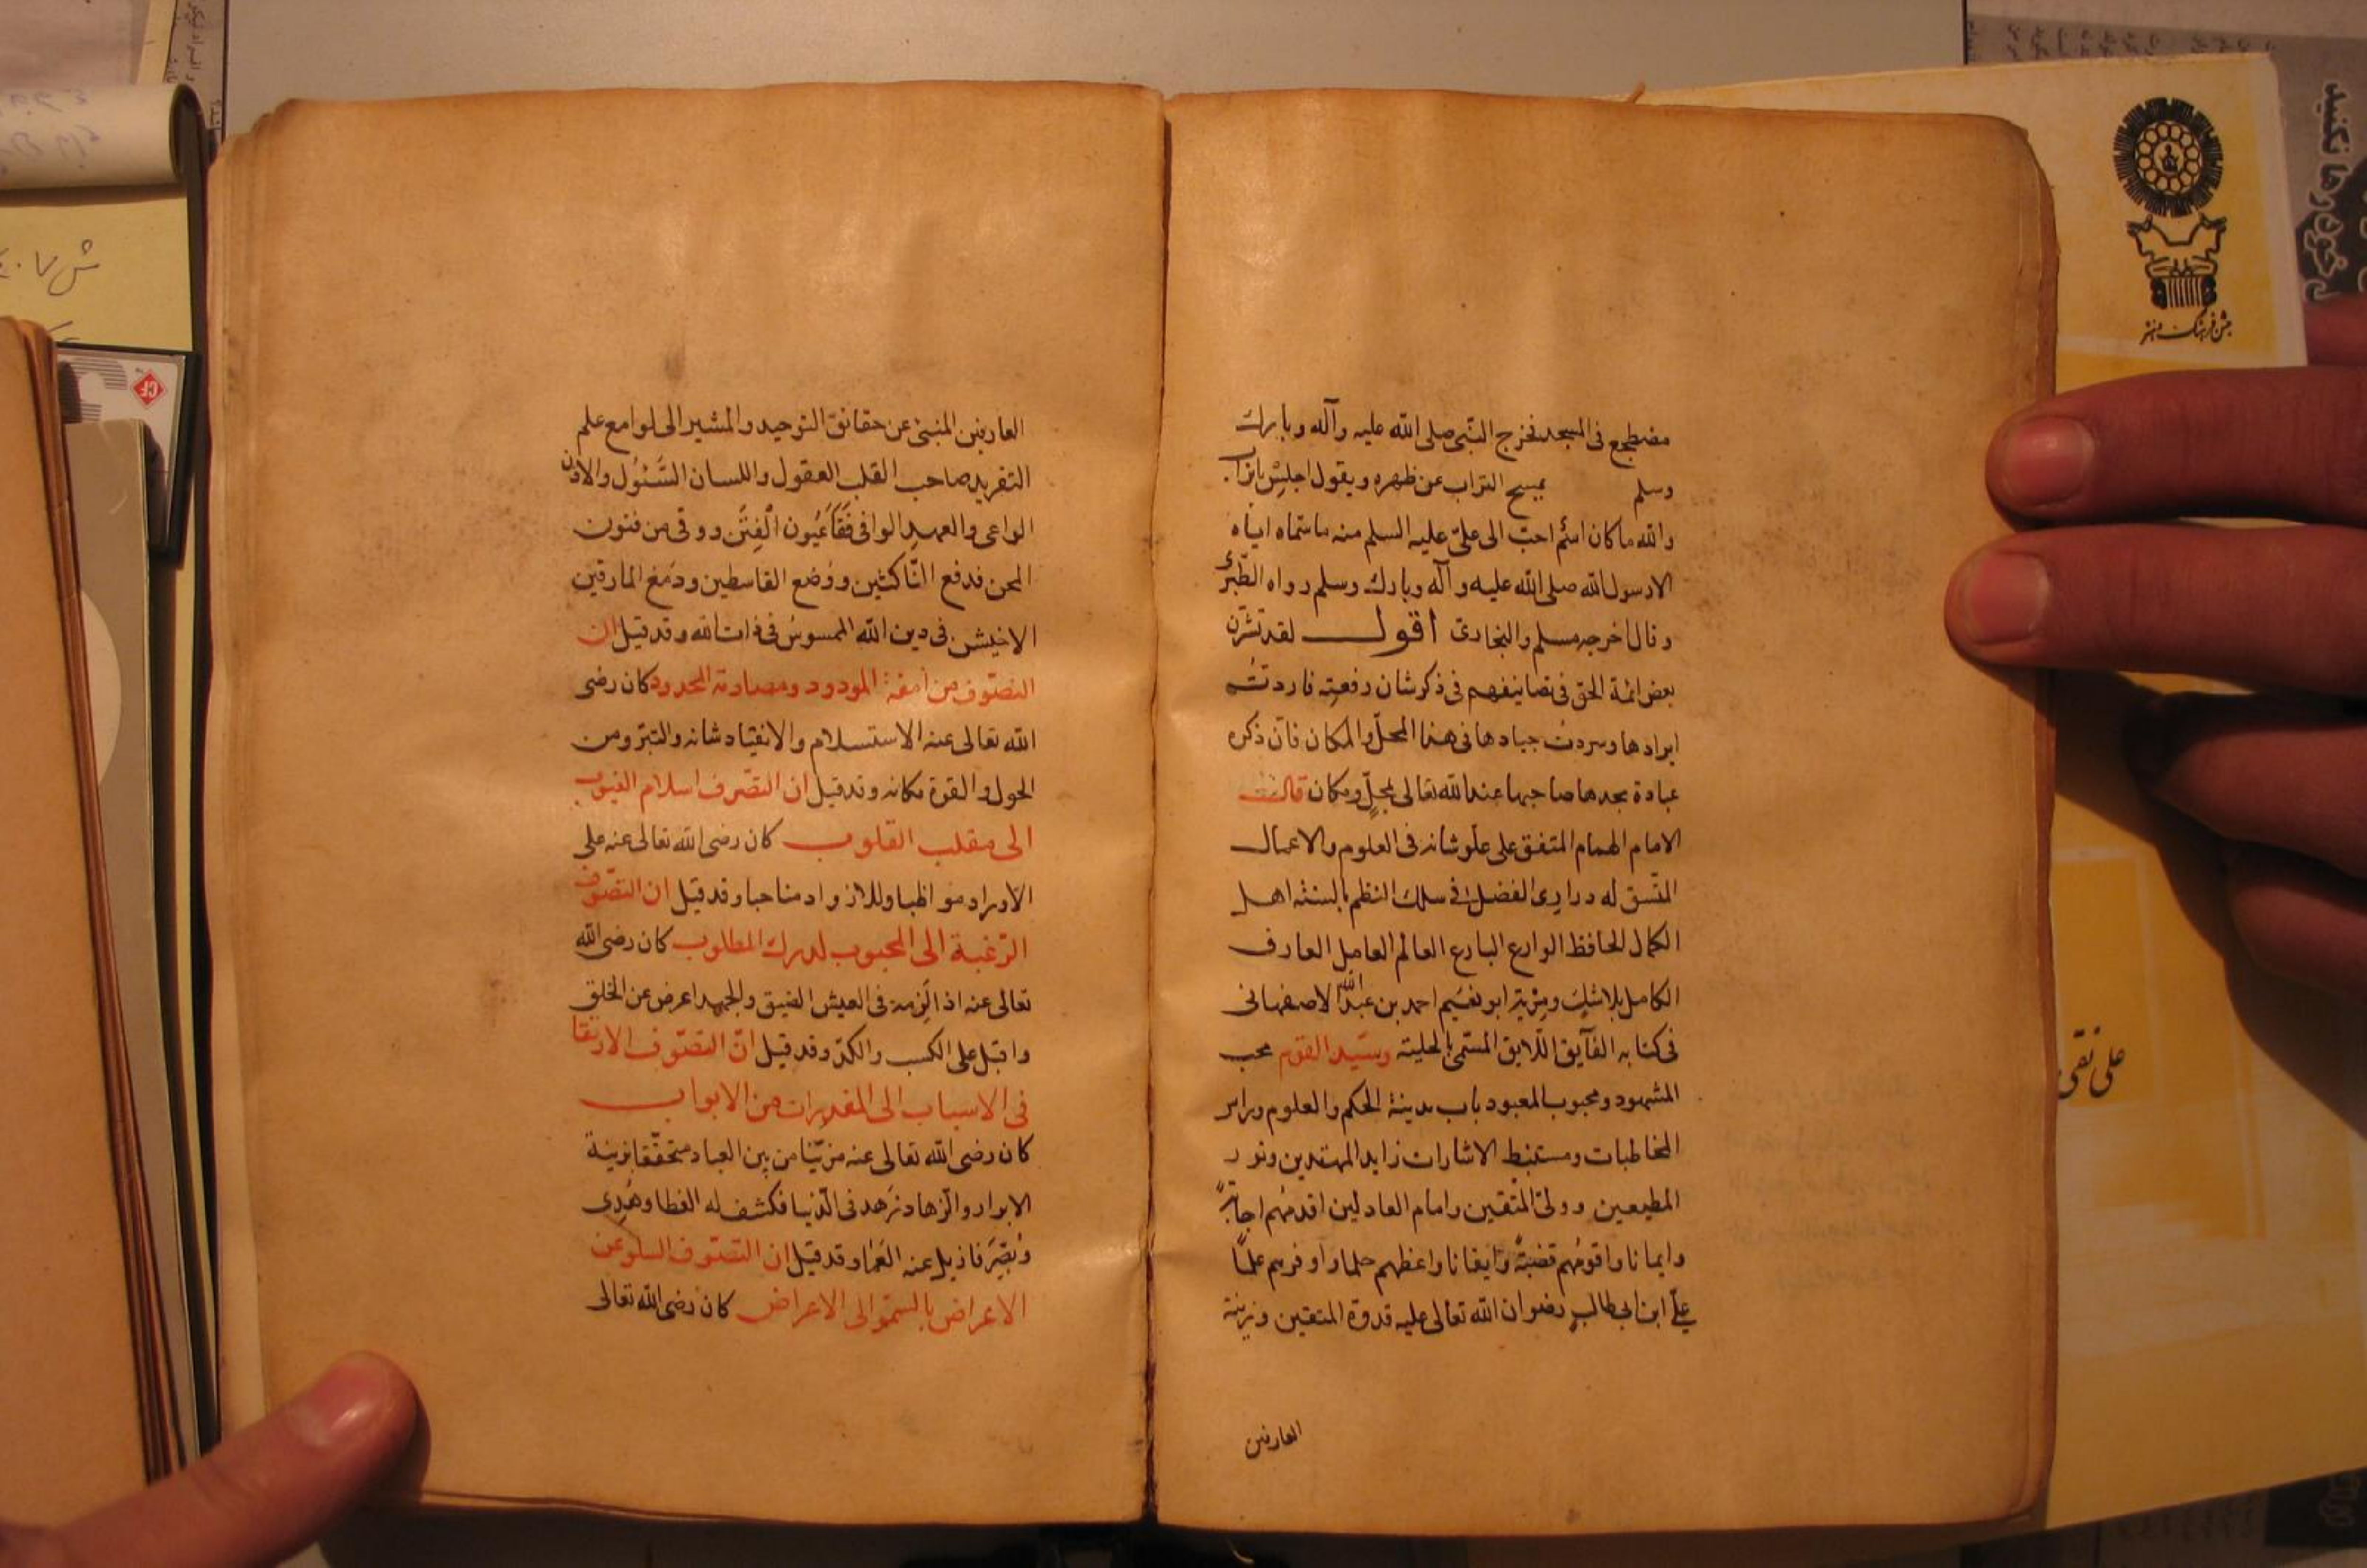 مضطجع فی المسجد فخرج النّبی صلی الله علیه وآله وبارک
وسلم یمسح التراب عن ظهره ویقول اجلس باتراب
والله ما کان اسم احبّ الی علیّ علیه السلم منه ما سمّاه ایاه
الا رسول الله صلی الله علیه وآله وبارک وسلم رواه الطّبری
وقال اخرجه مسلم والبخاری اقول لقد
بعض ائمة الحق فی تصانیفهم فی ذکر شان رفعته فاردت
ایرادها وسردت جیادها فی هذا المحلّ والمکان فانّ ذکره
عبادة یجدها صاحبها عند الله تعالی بمحلٍّ ومکان قال
الامام الهمام المتفق علی علو شانه فی العلوم والاعمال
المتّسق له دراری الفضل فی سلک النظم بالسنة اهل
الکمال الحافظ الوارع البارع العالم العامل العارف
الکامل بلا شک ومریة ابو نعیم احمد بن عبدالله الاصفهانی
فی کتابه الفآیق اللّایق المسمّی بالحلیة وسیّد القوم محب
المشهود ومحبوب المعبود باب مدینة الحکم والعلوم وراس
المخاطبات ومستنبط الاشارات رایة المهتدین ونور
المطیعین وولیّ المتّقین وامام العادلین اقدمهم اجابةً
وایمانا واقومُهم قضیّةً وایقانا واعظهم حلما واوفرهم علمًا
علیّ ابن ابیطالب رضوان الله تعالی علیه قدوة المتقین وزینة
العارفین
العارفین المنبئ عن حقائق التوحید والمشیر الی لوامع علم
التفرید صاحب القلب العقول واللسان السَّئول والاذن
الواعی والعهد الوافی فَقَأَ عُیُون الْفِتَن ووقی من فنون
المحن فدفع النّاکثین ووضع القاسطین ودمغ المارقین
الاخیشن فی دین الله الممسوس فی ذات الله وقد قیل ان
التصوّف مرامقة المودود ومصارمة المحدود کان رضی
الله تعالی عنه الاستسلام والانقیاد شانه والتبرّو من
الحول والقوة مکانه وقد قیل ان التصّرف اسلام الغیوب
الی مقلب القلوب کان رضی الله تعالی عنه علی
الاوراد مواظبا وللازواد مناحبا وقد قیل ان التصّوف
الرّغبة الی المحبوب لدرک المطلوب کان رضی الله
تعالی عنه اذا لزمه فی العیش الضیق والجهد اعرض عن الخلق
واقبل علی الکسب والکدّ وقد قیل انّ التصّوف الارتقا
فی الاسباب الی المقدرات من الابواب
کان رضی الله تعالی عنه مزیّنا من بین العباد متحقّقا بزینة
الابرار والزّهاد زهد فی الدّنیا فکشف له الغطا وهُدِی
وبُصِّرَ فازیل عنه العَمَا وقد قیل ان التصّوف السلو عن
الاعراض بالسموّ الی الاعراض کان رضی الله تعالی
جشن فرهنگ و هنر
علی نقی
ش ۷